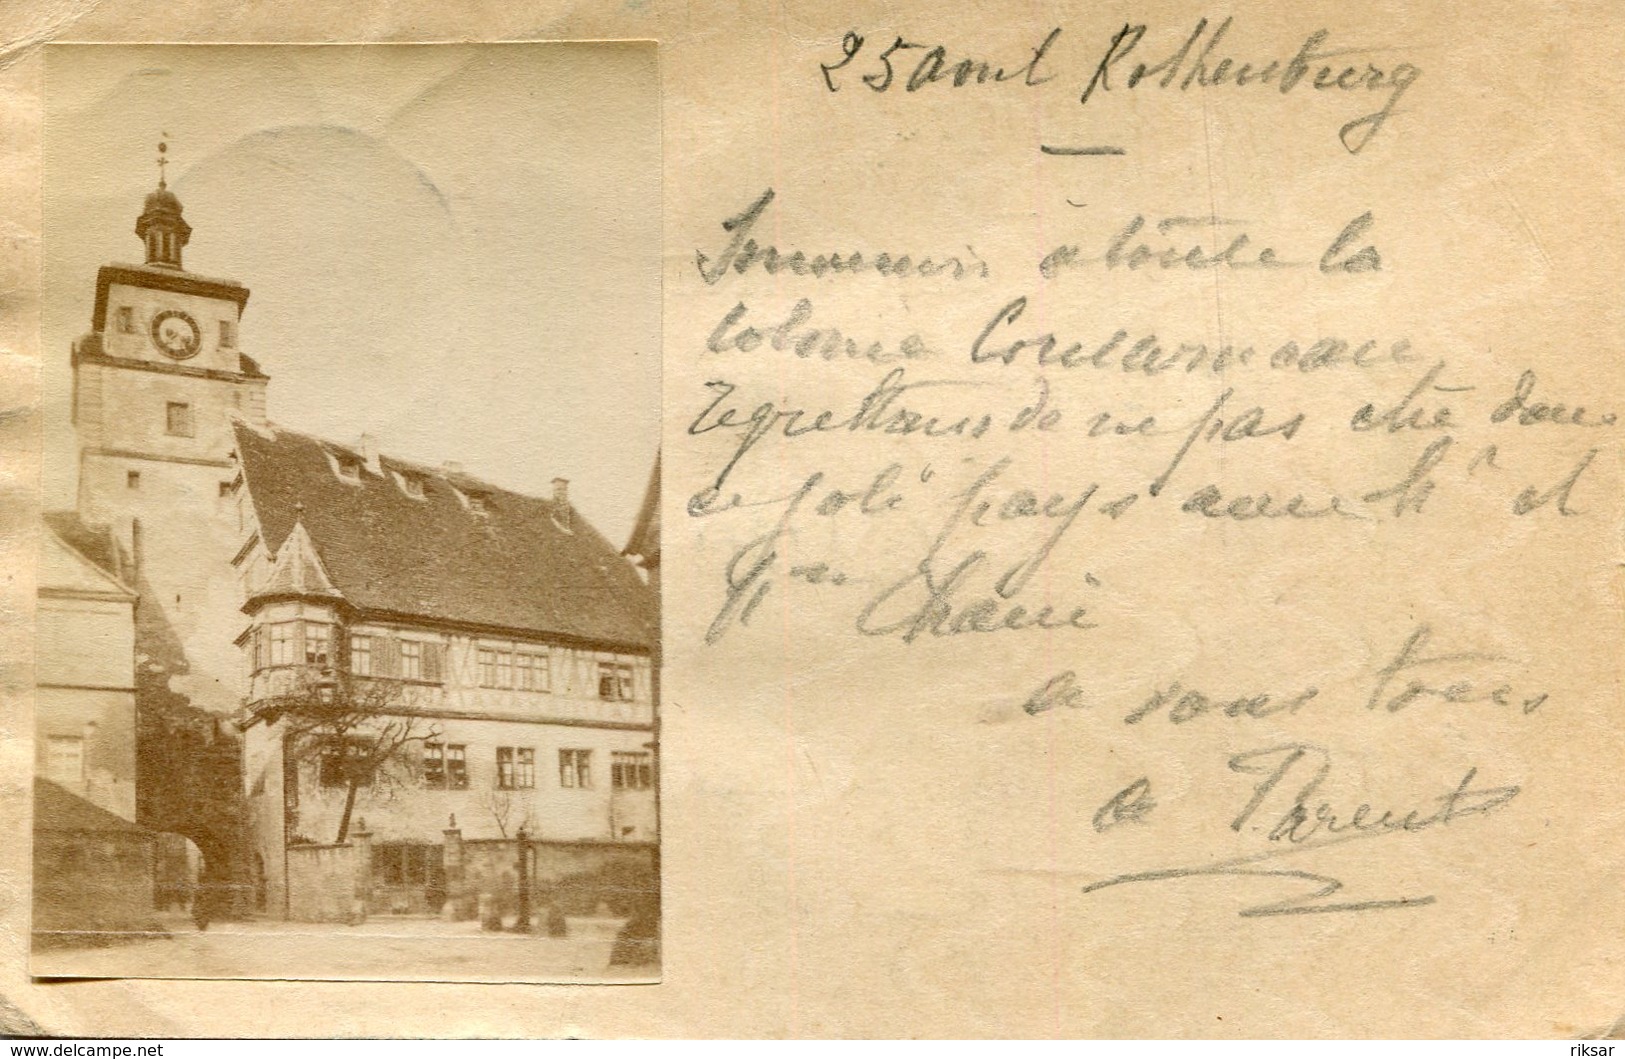 25 aout Rothenburg
Souvenir à toute la
Colonie
regrettans de ne pas etre dans
ce joli pays avec Mr et
Mme
a vous tous
a Parent
www.delcampe.net
riksar